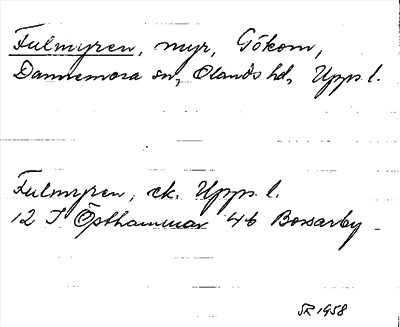 Fulmyren, myr, Gökom,
Dannemora sn, Olands hd, Upps. l.
Fulmyren, ek. Upps. l.
12 I Östhammar 4b Boxarby
SR 1958